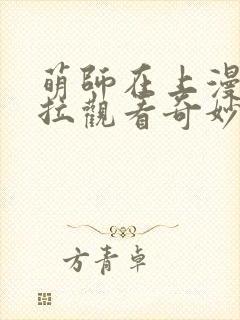 萌師在上漫
拉觀看奇妙
方青卓